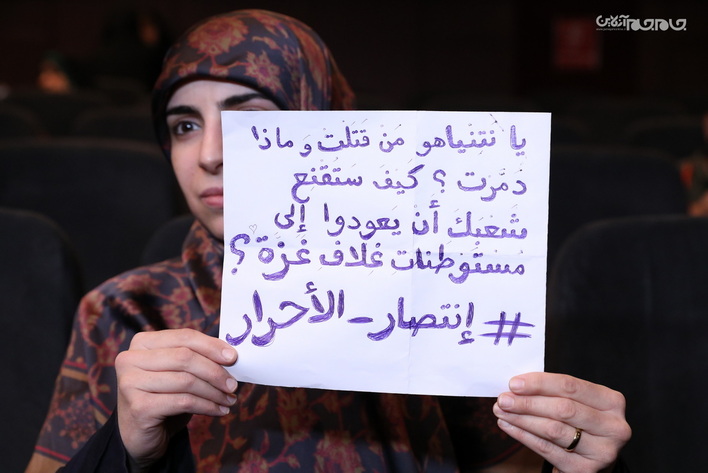 جام‌جم آنلاین
يا نتنياهو من قتلت و ماذا
دمرت ؟ كيف ستقنع
شعبك أن يعودوا إلى
مستوطنات غلاف غزة ؟
# إنتصار_الأحرار